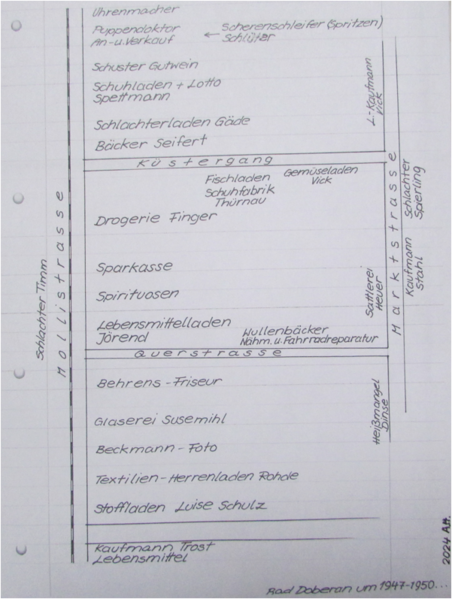 Uhrenmacher
Puppendoktor
An- u. Verkauf
← Scherenschleifer (Spritzen)
Schlüter
Schuster Gutwein
Schuhladen + Lotto
Spettmann
Schlachterladen Gäde
Bäcker Seifert
L.-Kaufmann
Vick
Küstergang
Fischladen
Schuhfabrik
Thürnau
Gemüseladen
Vick
Drogerie Finger
Sparkasse
Spirituosen
Lebensmittelladen
Jörend
Wullenbäcker
Nähm. u. Fahrradreparatur
Sattlerei
Heuer
Marktstrasse
Schlachter
Spierling
Kaufmann
Stahl
Schlachter Timm
Mollistrasse
Querstrasse
Behrens-Friseur
Glaserei Susemihl
Beckmann-Foto
Textilien-Herrenladen Rohde
Stoffladen Luise Schulz
Heißmangel
Dinse
Kaufmann Trost
Lebensmittel
2024 A.H.
Bad Doberan um 1947-1950...